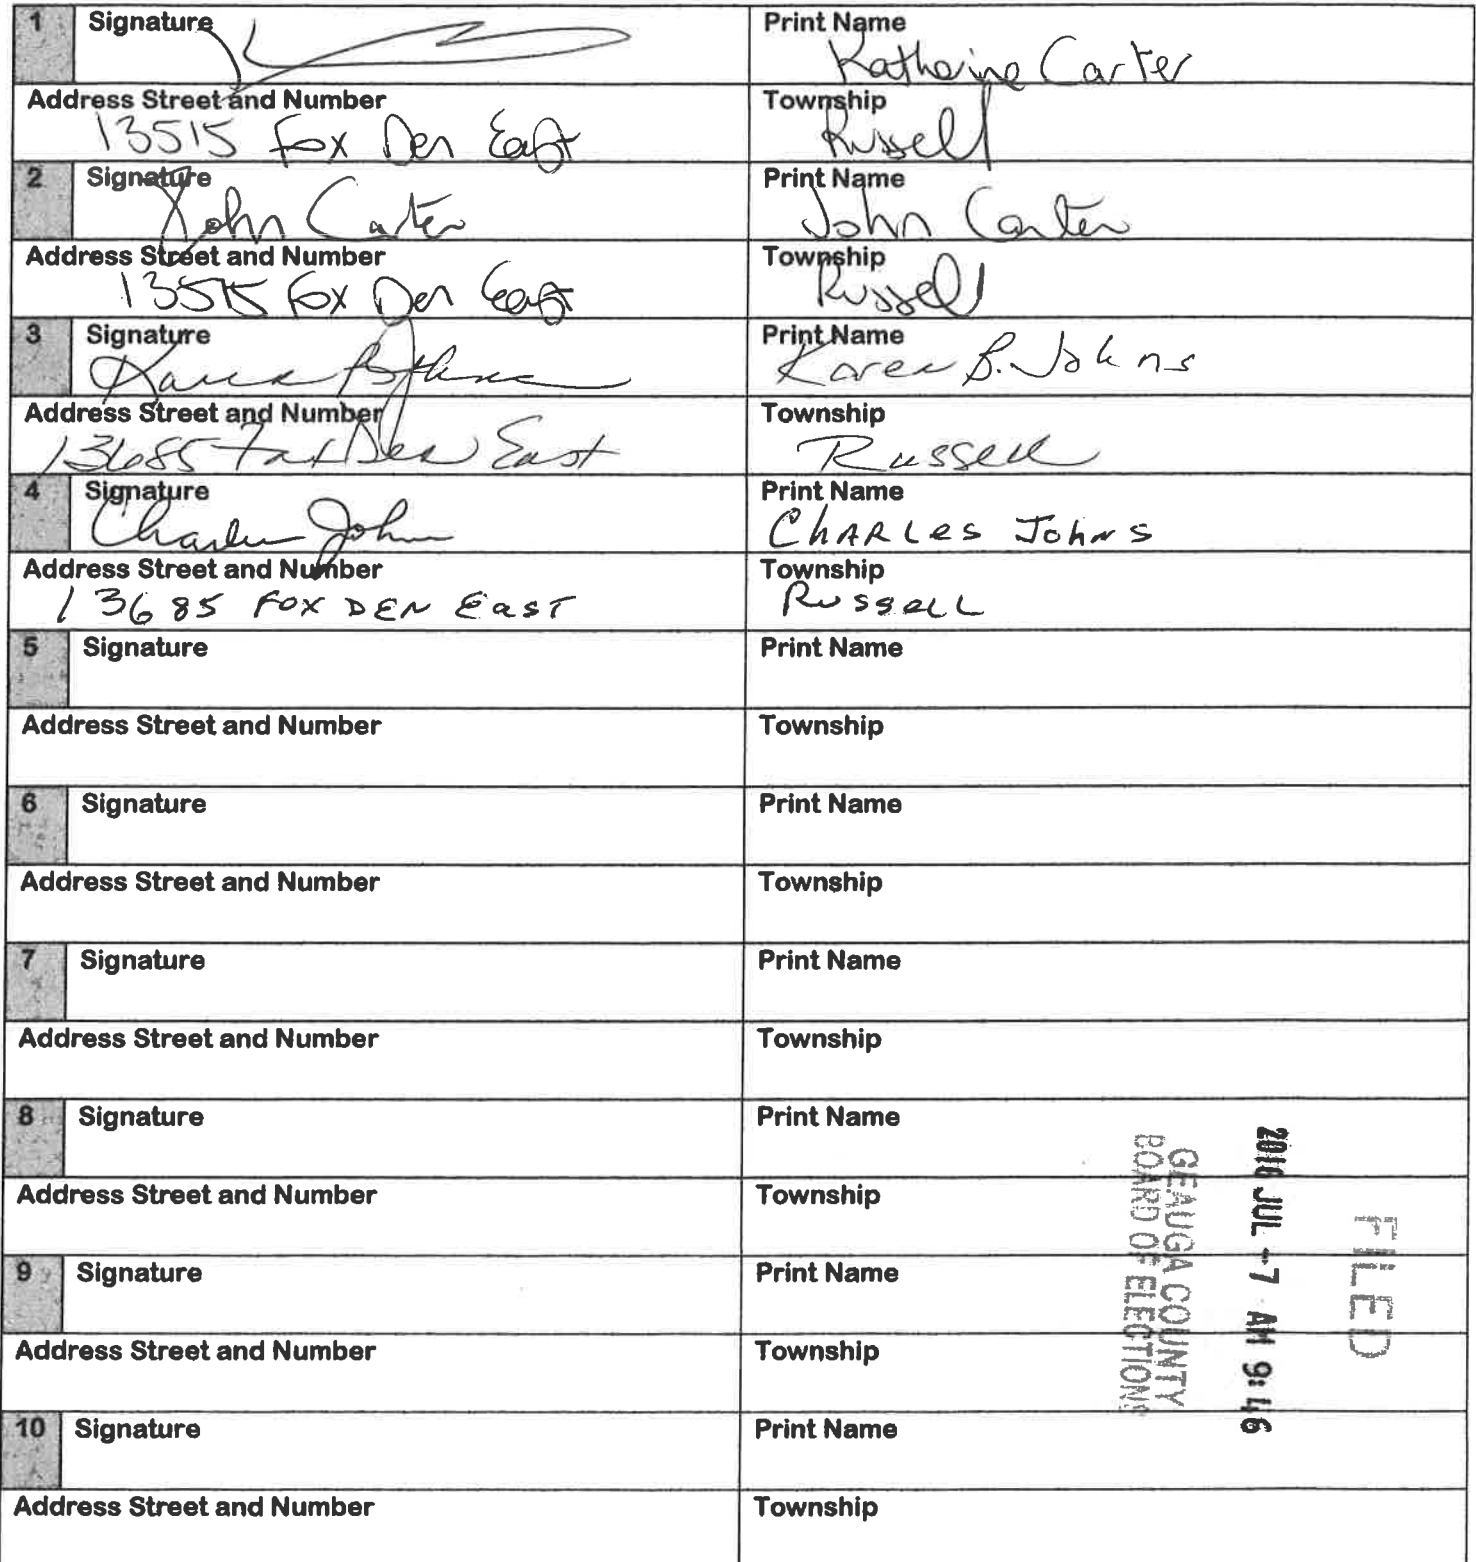 1 Signature Print Name
Katherine Carter
Address Street and Number Township
13515 Fox Den East Russell
2 Signature Print Name
John Carter John Carter
Address Street and Number Township
13515 Fox Den East Russell
3 Signature Print Name
Karen B Johns Karen B. Johns
Address Street and Number Township
13685 Fox Den East Russell
4 Signature Print Name
Charles Johns CHARLes JohNS
Address Street and Number Township
13685 FOX DEN EaST RussELL
5 Signature Print Name
Address Street and Number Township
6 Signature Print Name
Address Street and Number Township
7 Signature Print Name
Address Street and Number Township
8 Signature Print Name
Address Street and Number Township
9 Signature Print Name
Address Street and Number Township
10 Signature Print Name
Address Street and Number Township
FILED
2016 JUL -7 AM 9:46
GEAUGA COUNTY
BOARD OF ELECTIONS